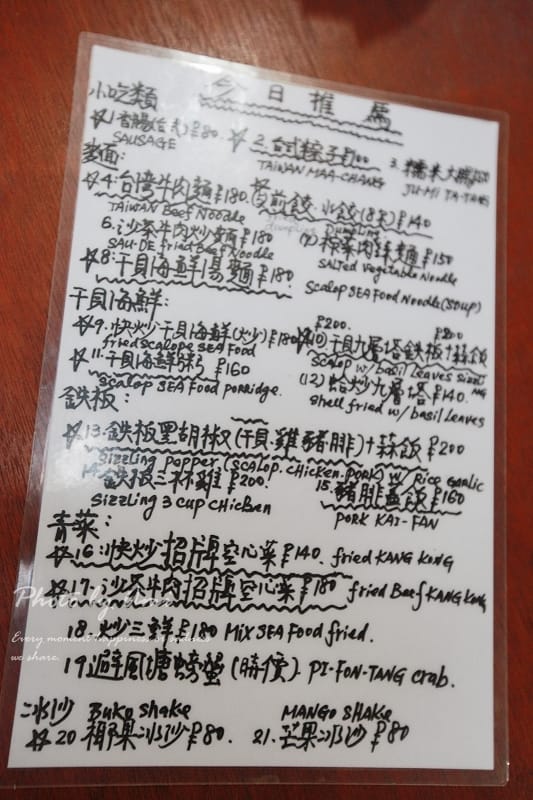 今日推薦
小吃類
☆1.香腸(台式)₱80. ☆2.台式粽子₱100 3.糯米大腸₱150
SAUSAGE TAIWAN MAA-CHANG JU-MI TA-TANG
麥面:
☆4.台湾牛肉麵₱180. ☆⑤煎餃.水餃(8支)₱140
TAIWAN Beef Noodle Dumpling
6.沙茶牛肉炒麵₱180 (7)榨菜肉絲麵₱150
SAU-DE fried Beef Noodle SALTed Vegetable Noodle
☆8.干貝海鮮湯麵₱180. Scalop SEA Food Noodle (SOUP)
干貝海鮮: ₱200. ₱200
☆9.快炒干貝海鮮(炒)₱180 ☆10)干貝九層塔鉄板+蒜飯
fried scalope SEA Food SCALOP w/ basil Leaves sizzl
☆11.干貝海鮮粥 ₱160 (12)蛤炒九層塔₱140.
scalop SEA Food porridge. shell fried w/ basil Leaves
鉄板:
☆13.鉄板黑胡椒(干貝.雞豬腓)+蒜飯₱200
sizzling popper (scalop.chicken.pork) w/ Rice garlic
14.鉄板三杯雞₱200. 15.豬腓蓋飯₱160
sizzling 3 cup chicken PORK KAI-FAN
青菜:
☆16.快炒招牌空心菜₱140. fried KANG KONG
☆17.沙茶牛肉招牌空心菜₱180 fried Beef KANG KONG
Photo by
18.炒三鮮₱180 Mix SEA Food fried.
Every moment happiness
we share.
19.避風塘螃蟹(時價). PI-FON-TANG crab.
冰沙 Buko shake MANGO SHAKe
☆20 椰果冰沙₱80. 21.芒果冰沙₱80